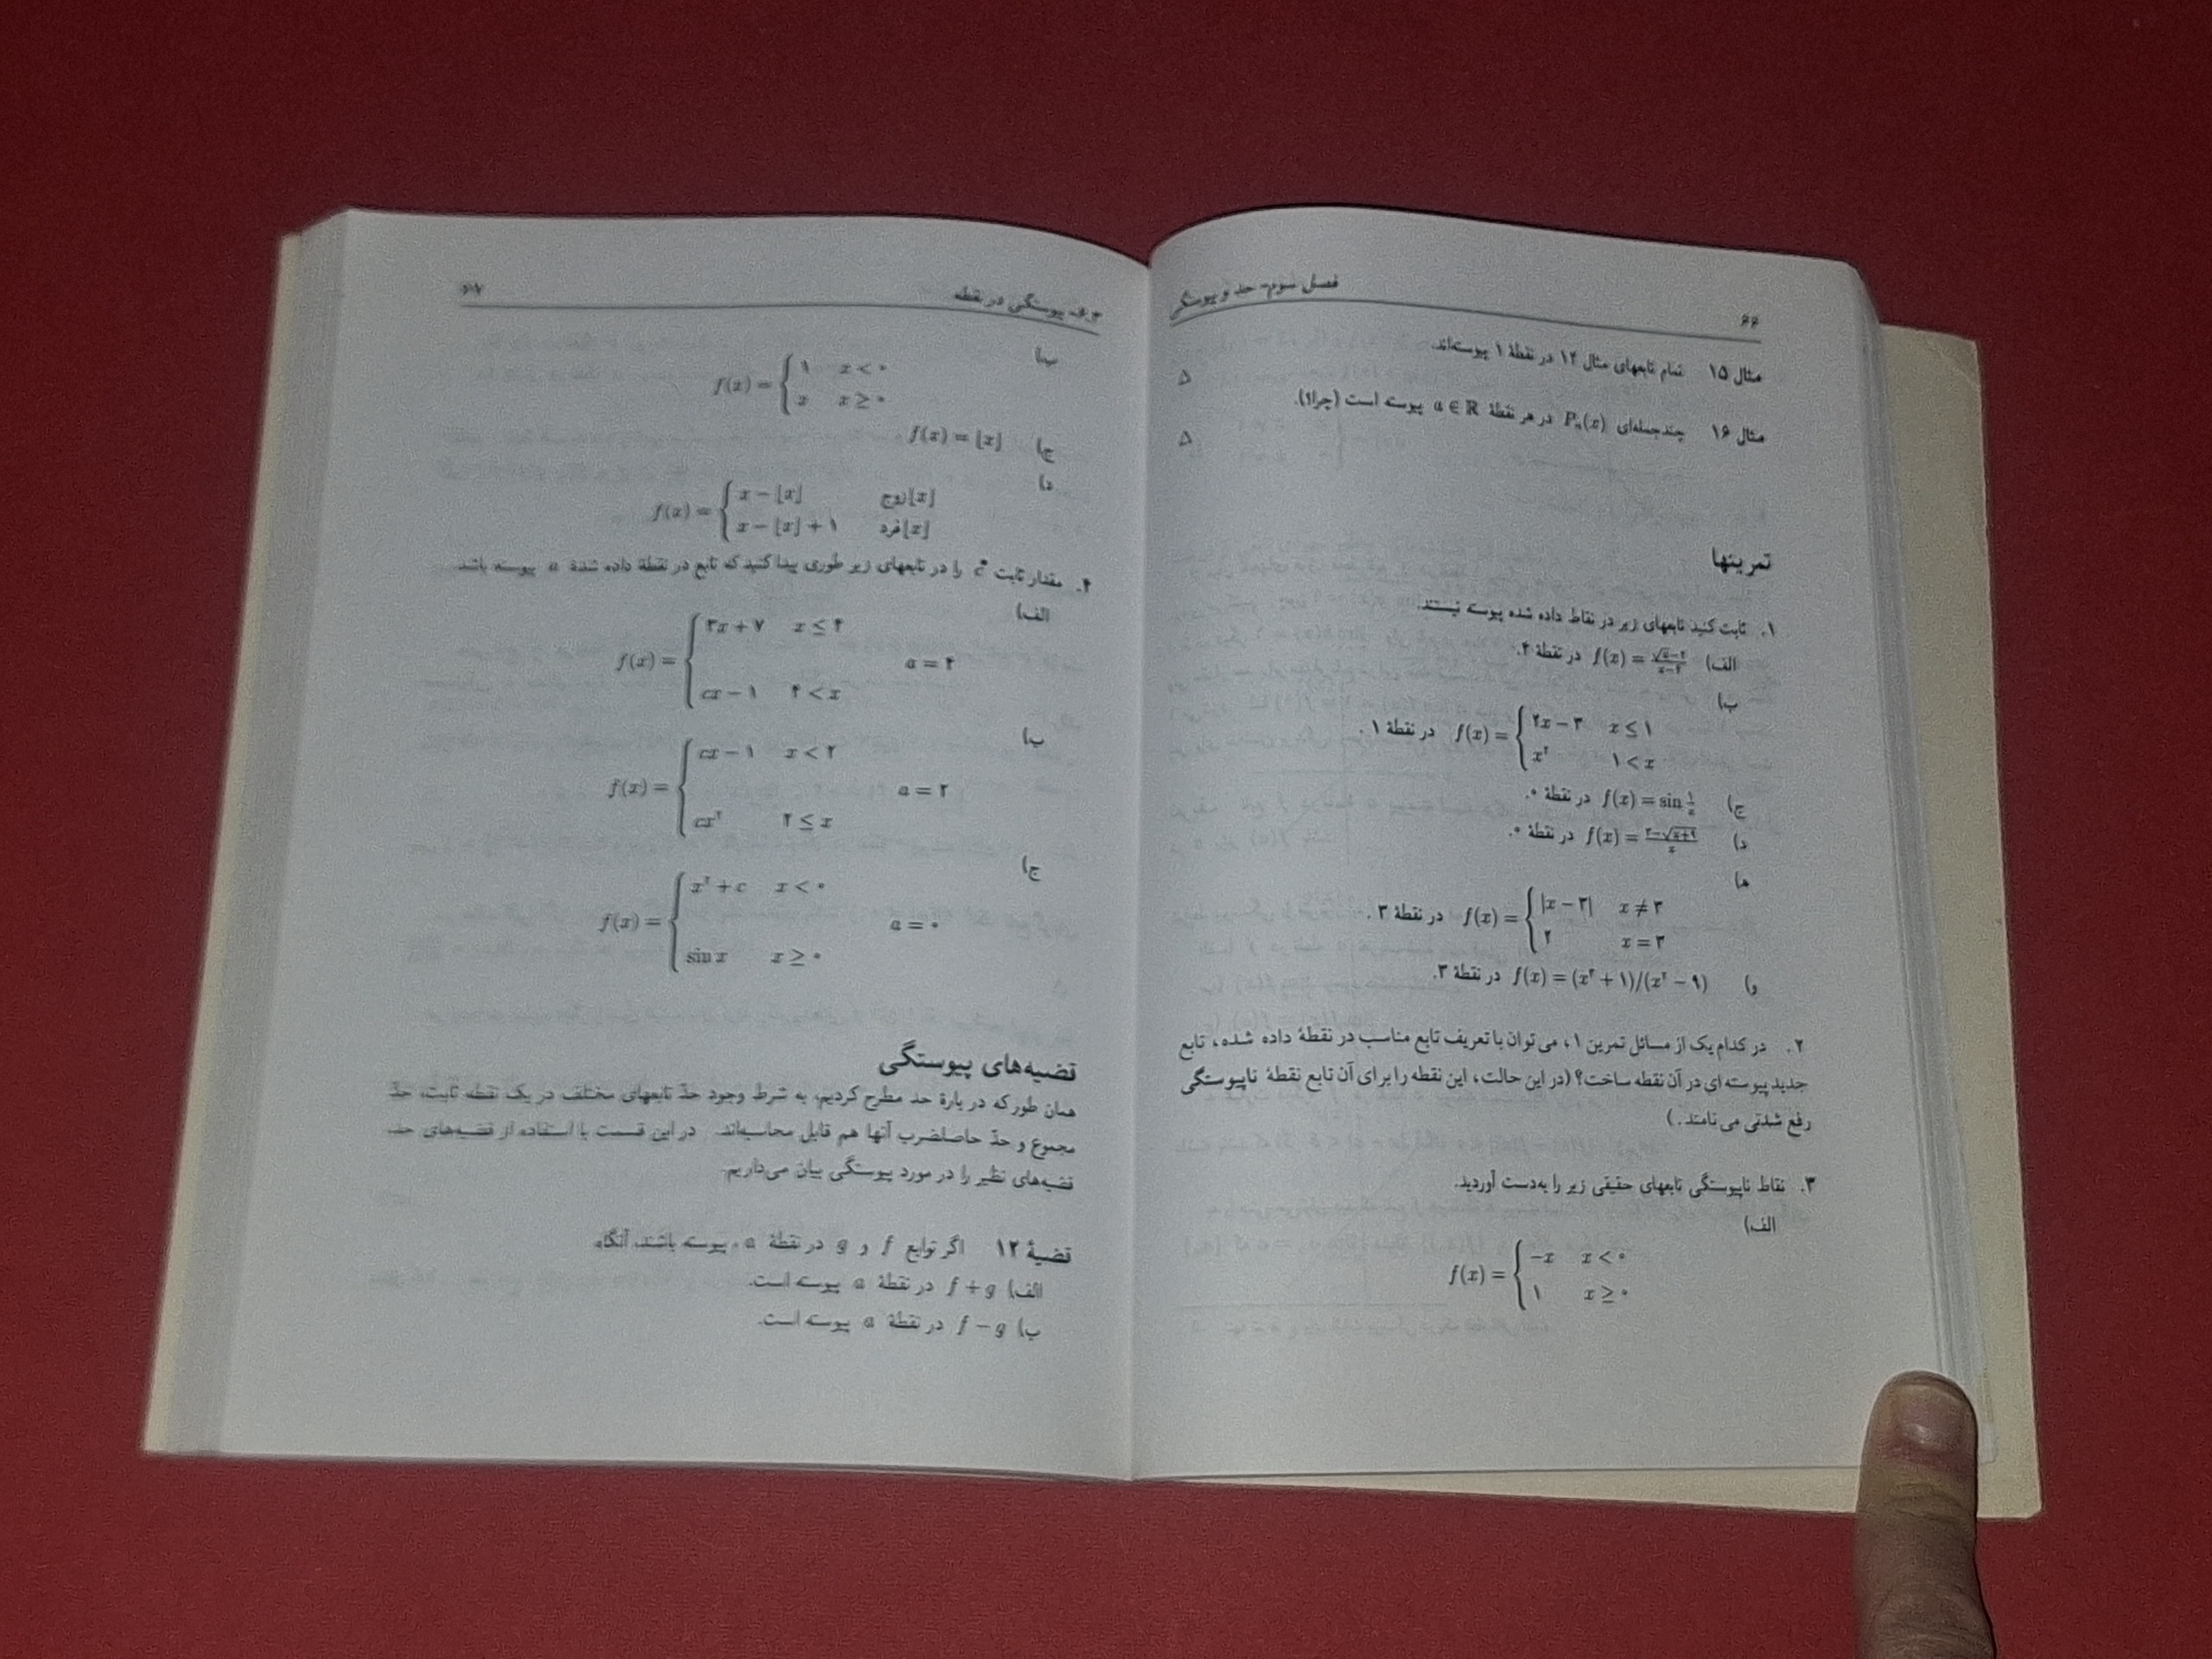 ۶۶
فصل سوم- حد و پیوستگی
مثال ۱۵ تمام تابعهای مثال ۱۴ در نقطهٔ ۱ پیوسته‌اند. Δ
مثال ۱۶ چندجمله‌ای Pₙ(x) در هر نقطهٔ a ∈ ℝ پیوسته است (چرا؟). Δ
تمرینها
۱. ثابت کنید تابعهای زیر در نقاط داده شده پیوسته نیستند.
الف) در نقطهٔ ۴.
ب)
f(x) = { ۲x − ۳ x ≤ ۱
x² ۱ < x در نقطهٔ ۱.
ج) f(x) = sin ۱/x در نقطهٔ ۰.
د) در نقطهٔ ۰.
ه)
f(x) = { |x − ۳| x ≠ ۳
۲ x = ۳ در نقطهٔ ۳.
و) در نقطهٔ ۳.
۲. در کدام یک از مسائل تمرین ۱، می‌توان با تعریف تابع مناسب در نقطهٔ داده شده، تابع
جدید پیوسته ای در آن نقطه ساخت؟ (در این حالت، این نقطه را برای آن تابع نقطهٔ ناپیوستگی
رفع شدنی می نامند.)
۳. نقاط ناپیوستگی تابعهای حقیقی زیر را به‌دست آورید.
الف)
f(x) = { −x x < ۰
۱ x ≥ ۰
پیوستگی در نقطه
۶۷
ب)
f(x) = { ۱ x < ۰
x x ≥ ۰
ج) f(x) = ⌊x⌋
د)
f(x) = { x − ⌊x⌋ زوج ⌊x⌋
x − ⌊x⌋ + ۱ فرد ⌊x⌋
۴. مقدار ثابت c را در تابعهای زیر طوری پیدا کنید که تابع در نقطهٔ داده شدهٔ a پیوسته باشد
الف)
f(x) = { ۳x + ۷ x ≤ ۴
a = ۴
cx − ۱ ۴ < x
ب)
f(x) = { cx − ۱ x < ۲
a = ۲
cx² ۲ ≤ x
ج)
f(x) = { x² + c x < ۰
a = ۰
sin x x ≥ ۰
قضیه‌های پیوستگی
همان طور که در بارهٔ حد مطرح کردیم، به شرط وجود حدّ تابعهای مختلف در یک نقطه ثابت، حدّ
مجموع و حدّ حاصلضرب آنها هم قابل محاسبه‌اند. در این قسمت با استفاده از قضیه‌های حد،
قضیه‌های نظیر را در مورد پیوستگی بیان می‌داریم.
قضیهٔ ۱۲ اگر توابع f و g در نقطهٔ a، پیوسته باشند، آنگاه
الف) f + g در نقطهٔ a پیوسته است.
ب) f − g در نقطهٔ a پیوسته است.